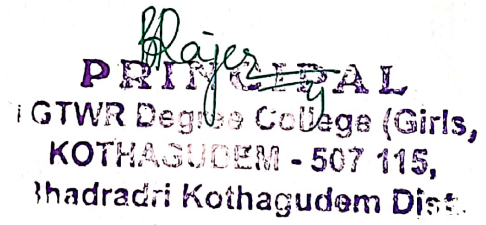 PRINCIPAL
GTWR Degree College (Girls,
KOTHAGUDEM - 507 115,
Bhadradri Kothagudem Dist.